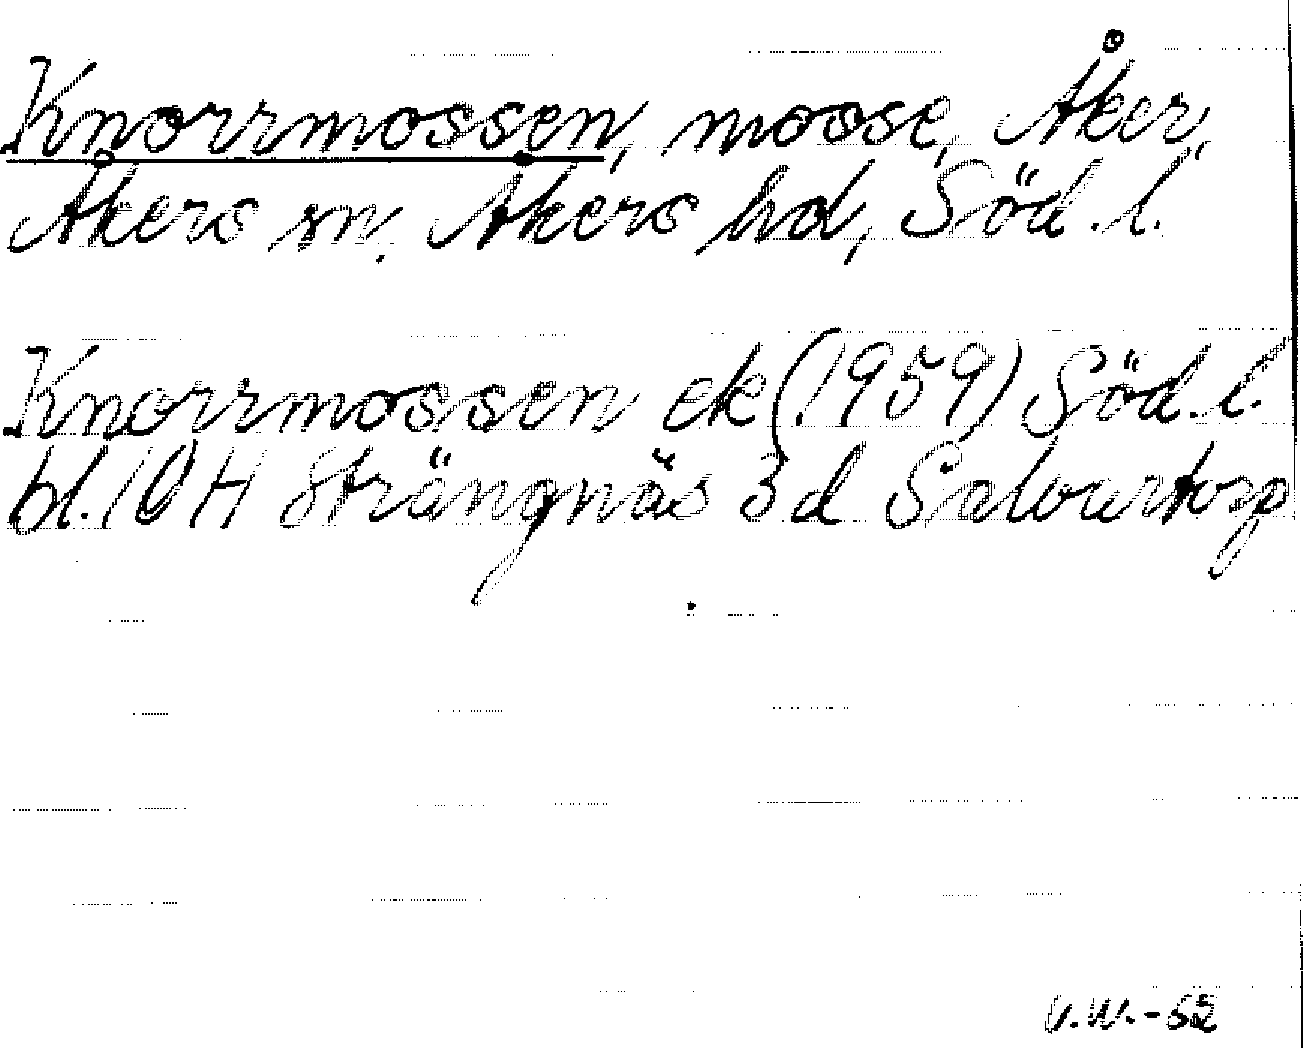 Knorrmossen, mosse, Åker,
Åkers sn, Åkers hd, Söd. l.
Knorrmossen ek (1959) Söd. l.
bl. 10 H Strängnäs 3 d Salvartorp
V.W. - 62